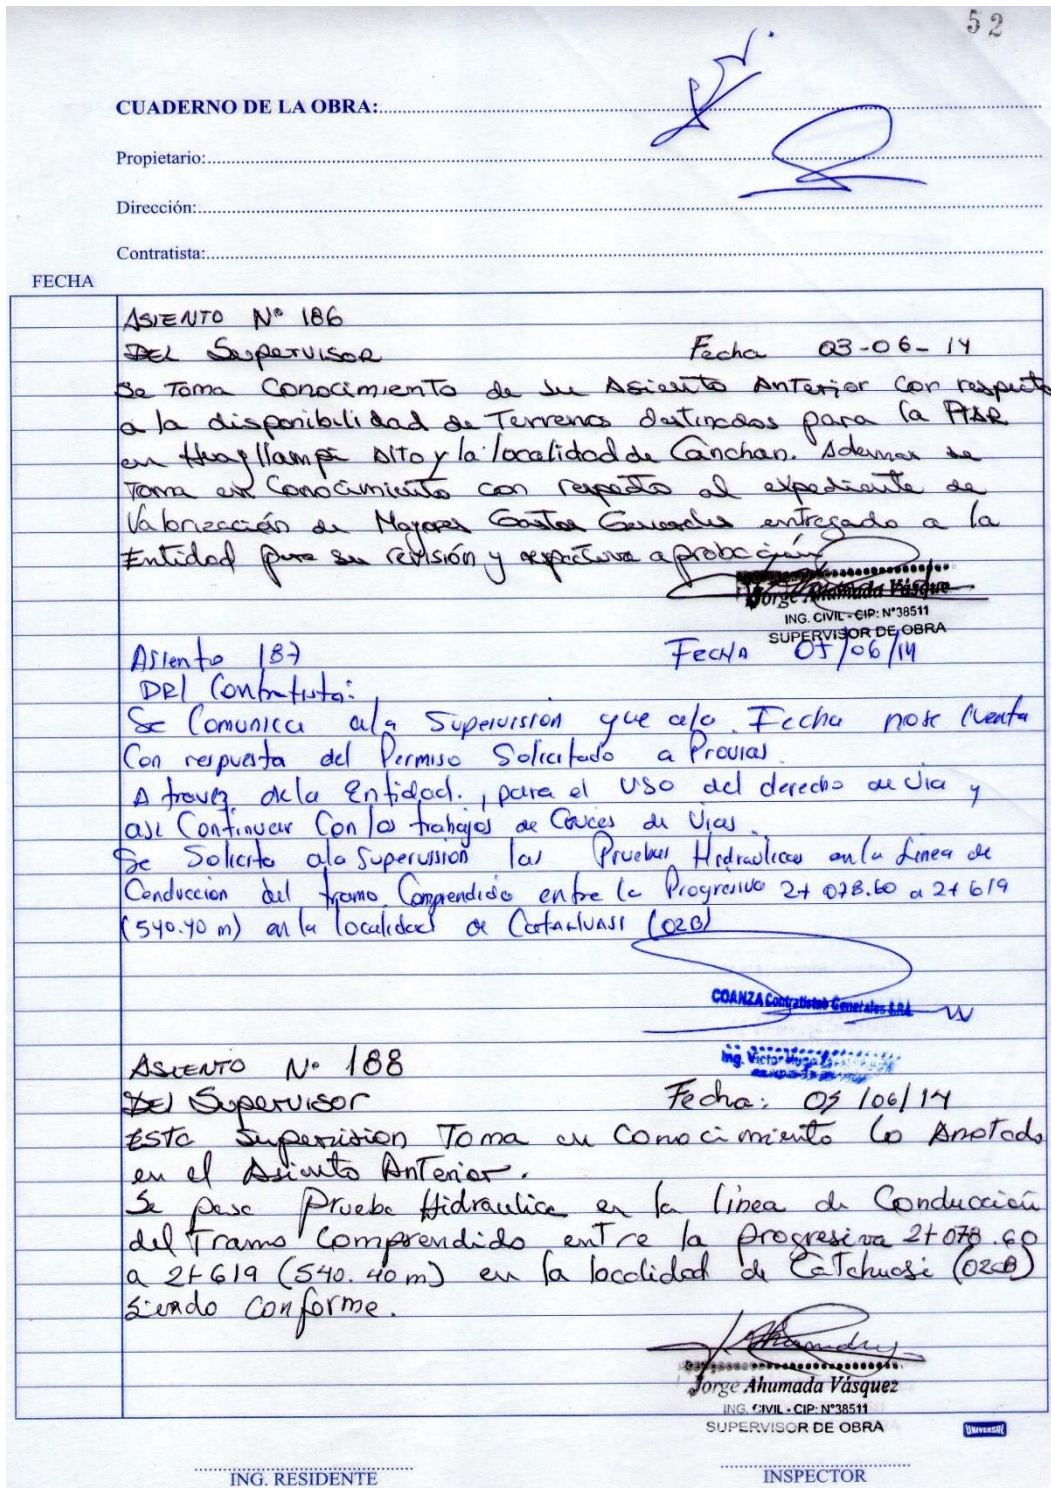 52
CUADERNO DE LA OBRA:
Propietario:
Dirección:
Contratista:
FECHA
ASIENTO Nº 186
DEL SUPERVISOR Fecha 03-06-14
Se Toma Conocimiento de su Asiento Anterior con respecto
a la disponibilidad de Terrenos destinados para la PTAR
en Huayllampi Alto y la localidad de Canchan. Ademas se
Toma en Conocimiento con respecto al expediente de
Valorización de Mayores Gastos Generales entregado a la
Entidad para su revisión y respectiva aprobación
Jorge Ahumada Vásque
ING. CIVIL - CIP: N°38511
SUPERVISOR DE OBRA
Asiento 187 Fecha 05/06/14
Del Contratista:
Se Comunica ala Supervisión que ala Fecha nose Cuenta
Con respuesta del Permiso Solicitado a Provias.
A travez dela Entidad., para el USO del derecho de via y
asi Continuar Con los trabajos de Cruces de Vias.
Se Solicita ala Supervisión las Pruebas Hidraulicas en la Linea de
Conducción del tramo Comprendido entre la Progresiva 2+078.60 a 2+619
(540.40 m) en la localidad de Catachuasi (02B)
COANZA Contratistas Generales S.R.L
Ing. Victor Hugo
ASIENTO Nº 188
Del Supervisor Fecha: 05/06/14
Esta Supervision Toma en Conocimiento lo Anotado
en el Asiento Anterior.
Se pasa Prueba Hidraulica en la línea de Conducción
del Tramo Comprendido entre la progresiva 2+078.60
a 2+619 (540.40 m) en la localidad de Catchuasi (02B)
Siendo Conforme.
Jorge Ahumada Vásquez
ING. CIVIL - CIP: N°38511
SUPERVISOR DE OBRA
UNIVERSAL
ING. RESIDENTE INSPECTOR